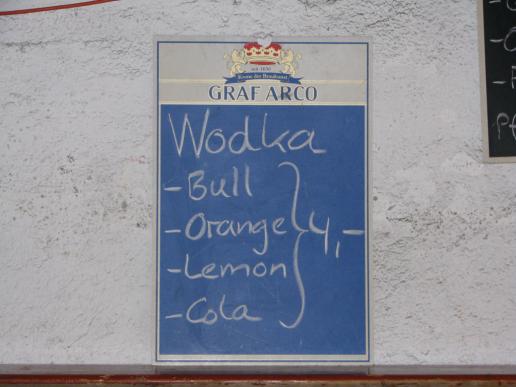 seit 1650
Krone der Braukunst
GRAF ARCO
Wodka
- Bull
- Orange 4,-
- Lemon
- Cola